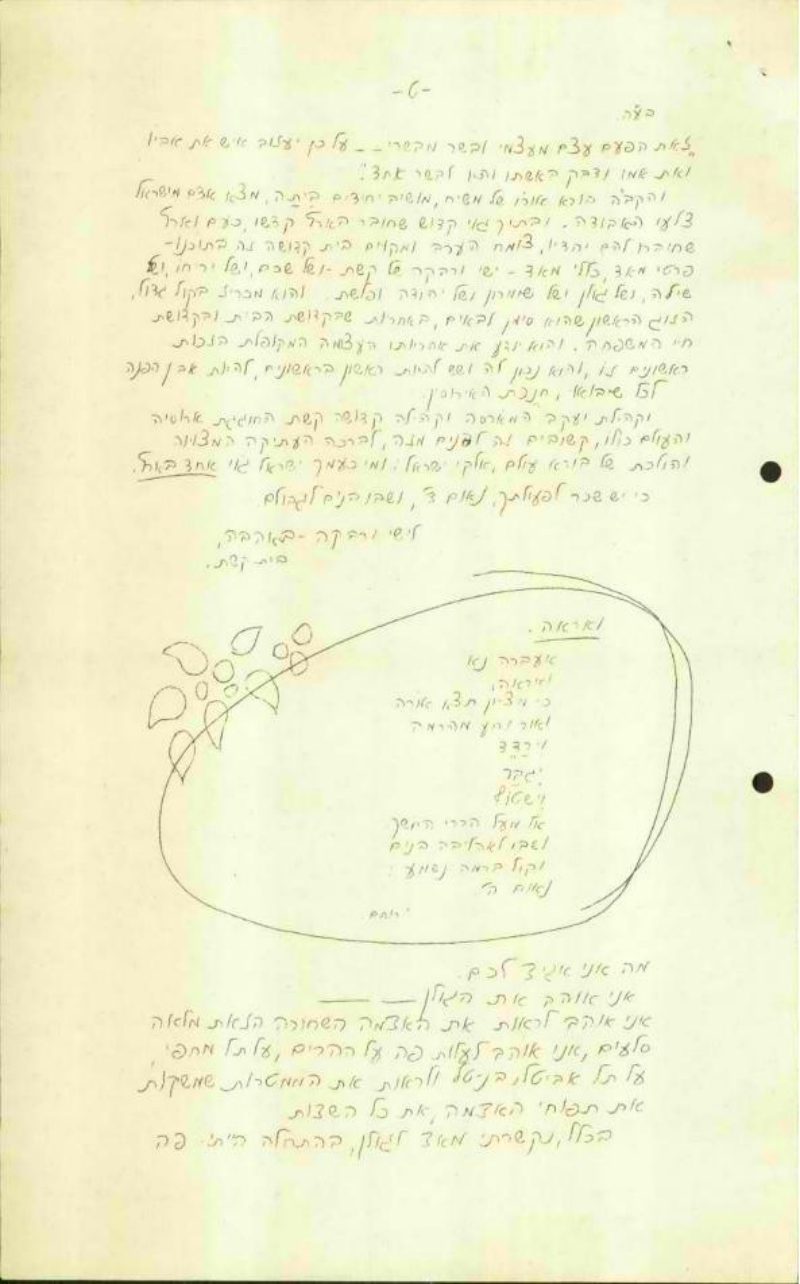 -6-
בע"ה
"זאת הפעם עצם מעצמי ובשר מבשרי -- על כן יעזוב איש את אביו
ואת אמו ודבק באשתו והיו לבשר אחד."
והקב"ה בורא אורו של משיח, מושיב יחידים ביתה, מצא אדם מישראל
צלעו האבודה. ובתוך גאי קדוש שחובר בארץ קדשו, כעם וארץ
שחיברו להם יחדיו, צומח הערב ומקוים בית קדושה זה בתוכנו -
פרטי מאד, כללי מאד - ישי ורבקה של קשת - ושל שכם, ושל יריחו, ושל
שילה, ושל גולן ושל שומרון ושל יהודה ופלשת. והוא מכריז בקול גדול,
הזוג הראשון שהוא סימן לבאים, באחרות שבקדושת הבית ובקדושת
חיי המשפחה. והוא יודע את אחריותו העצמה המקופלת בזכות
ראשונים זו, והוא נכון לה ושש להיות ראשון בראשונים, להיות אבן הפנה
לכל שיבואו, חנוכת האירוסין.
וקהלת יעקב המארסה וקהילה קדושה קשת החוגגת ארוסיה
והעולם כולו, קשובים זה לפנים מזה, לברכה העתיקה המצויה
והולכת של בורא עולם, אלקי ישראל: ומי כעמך ישראל גוי אחד בארץ.
כי יש שכר לפעולתך, נאום ד', ושבו בנים לגבולם
לישי ורבקה - באהבה,
בית קשת.
ואראה.
איעברה נא
ואיראה,
כי מציון תצא אורה
ואור יופע מהרמה
וירדד
יגבר
וישטוף
אל מעל הררי החושך
ושבו לאהליבה בנים
וקול ברמה נשמע:
נאום ה'.
ירוחם
מה אני אגיד לכם.
אני אוהב את הגולן — —
אני אוהב לראות את האדמה השחורה הזאת מלאה
סלעים, אני אוהב לעלות פה על ההרים, על תל מחפי,
על תל אביטל, בניטל ולראות את הממטרות שמשקות
את תפוחי האדמה, את כל השדות
בכלל, נקשרתי מאד לגולן, בהתחלה הייתי פה